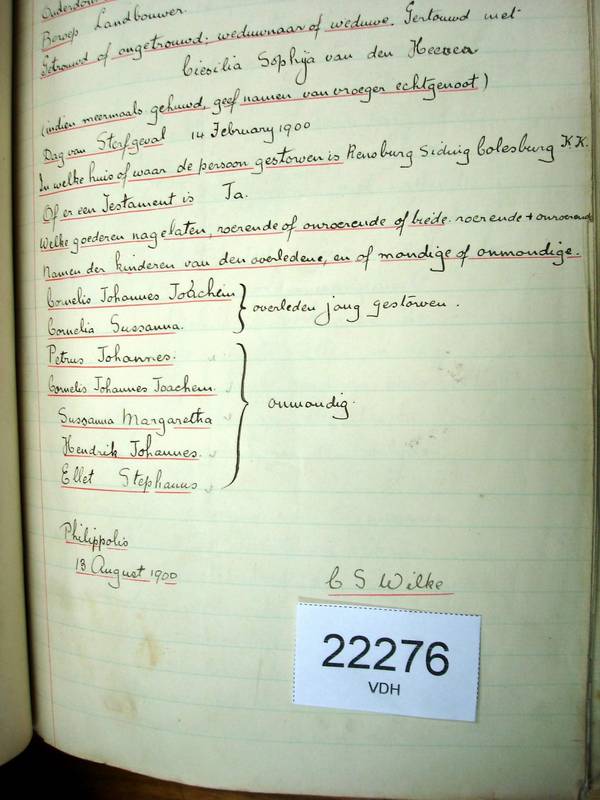 Beroep Landbouwer.
Getrouwd of ongetrouwd: weduwnaar of weduwe. Getouwd met
Ciesilia Sophÿa van den Heever
(indien meermaals gehuwd, geef namen van vroeger echtgenoot)
Dag van Sterfgeval 14 February 1900
In welke huis of waar de persoon gestorven is Rensburg Siding Colesburg K.K.
Of er een Testament is Ja.
Welke goederen nagelaten, roerende of onroerende of beide. roerende + onroerende
Namen der kinderen van den overledene, en of mondige of onmondige.
Cornelis Johannes Joachem
Cornelia Sussanna.
overleden jong gestorven.
Petrus Johannes.
Cornelis Johannes Joachem.
Sussanna Margaretha
Hendrik Johannes.
Ellet Stephanus
onmondig.
Philippolis
13 August 1900
C S Wilke
22276
VDH